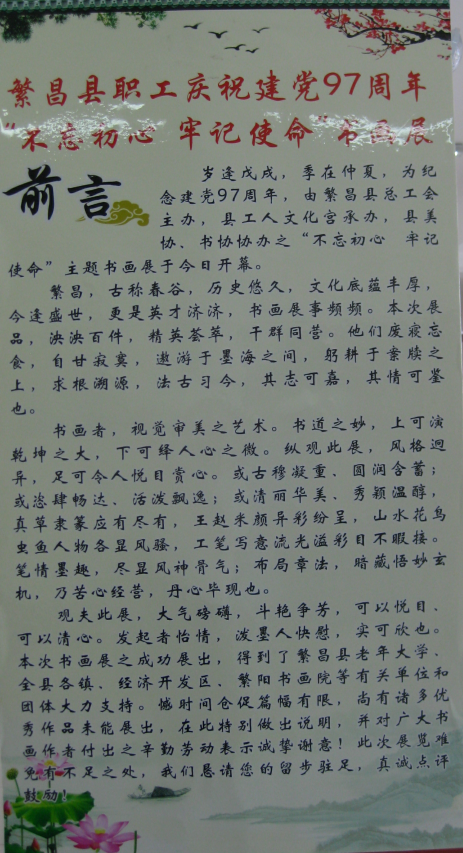 繁昌县职工庆祝建党97周年
“不忘初心 牢记使命”书画展
前言
岁逢戊戌，季在仲夏，为纪
念建党97周年，由繁昌县总工会
主办，县工人文化宫承办，县美
协、书协协办之“不忘初心 牢记
使命”主题书画展于今日开幕。
繁昌，古称春谷，历史悠久，文化底蕴丰厚，
今逢盛世，更是英才济济，书画展事频频。本次展
品，泱泱百件，精英荟萃，干群同营。他们废寝忘
食，自甘寂寞，遨游于墨海之间，躬耕于案牍之
上，求根溯源，法古习今，其志可嘉，其情可鉴
也。
书画者，视觉审美之艺术。书道之妙，上可演
乾坤之大，下可绎人心之微。纵观此展，风格迥
异，足可令人悦目赏心。或古穆凝重、圆润含蓄；
或恣肆畅达、活泼飘逸；或清丽华美、秀颖温醇，
真草隶篆应有尽有，王赵米颜异彩纷呈，山水花鸟
虫鱼人物各显风骚，工笔写意流光溢彩目不暇接。
笔情墨趣，尽显风神骨气；布局章法，暗藏悟妙玄
机，乃苦心经营，丹心毕现也。
观夫此展，大气磅礴，斗艳争芳，可以悦目、
可以清心。发起者怡情，泼墨人快慰，实可欣也。
本次书画展之成功展出，得到了繁昌县老年大学、
全县各镇、经济开发区、繁阳书画院等有关单位和
团体大力支持。憾时间仓促篇幅有限，尚有诸多优
秀作品未能展出，在此特别做出说明，并对广大书
画作者付出之辛勤劳动表示诚挚谢意！此次展览难
免有不足之处，我们恳请您的留步驻足，真诚点评
鼓励！